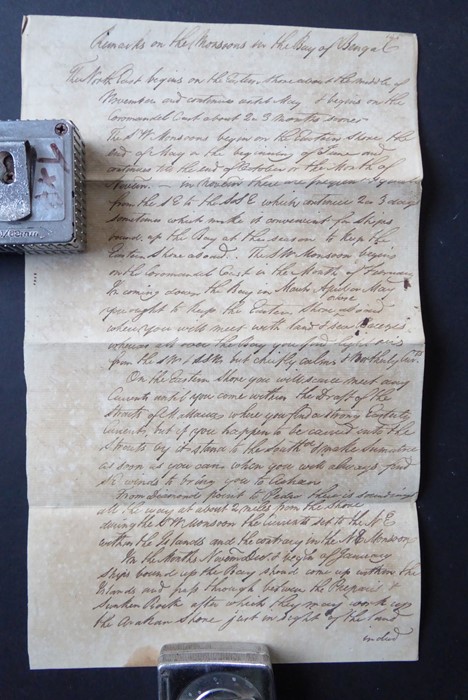 Remarks on the Monsoons in the Bay of Bengal
The North East begins on the Eastern shore about the middle of
November and continues until May & begins on the
Coromandel Coast about 2 or 3 months sooner
The S.W. Monsoons begin on the Eastern shore the
end of May or the beginning of June and
continues till the end of October or the Month of
in there are frequent
from the S E to the which continues 2 or 3 days
sometimes which makes it convenient for ships
bound up the Bay at this season to keep the
Eastern Shore aboard. The S.W. Monsoon begins
on the Coromandel Coast in the Month of February
In coming down the Bay in March April or May
you ought to keep the Eastern Shore close aboard
where you will meet with land & sea breezes
whereas all over the Bay you find light airs
from the SW & SSW but chiefly calms & Northerly
On the Eastern Shore you will scarce meet any
Currents until you come within the Draft of the
Straits of Malacca where you find a strong Easterly
Current, but if you happen to be carried into the
Straits by it stand to the South & make Sumatra
as soon as you can when you will always find
winds to bring you to Achan
From Diamond point to Pedir there is soundings
all the way at about 2 miles from the Shore
during the S.W. Monsoon the Currents set to the N.E
within the Islands and the contrary in the N.E Monsoon
In the Months Novem Dec & begin of January
ships bound up the Bay should come up within the
Islands and pass through between the Preparis &
Sunken Rock after which they may work up
the Arakan Shore just in sight of the land
indeed